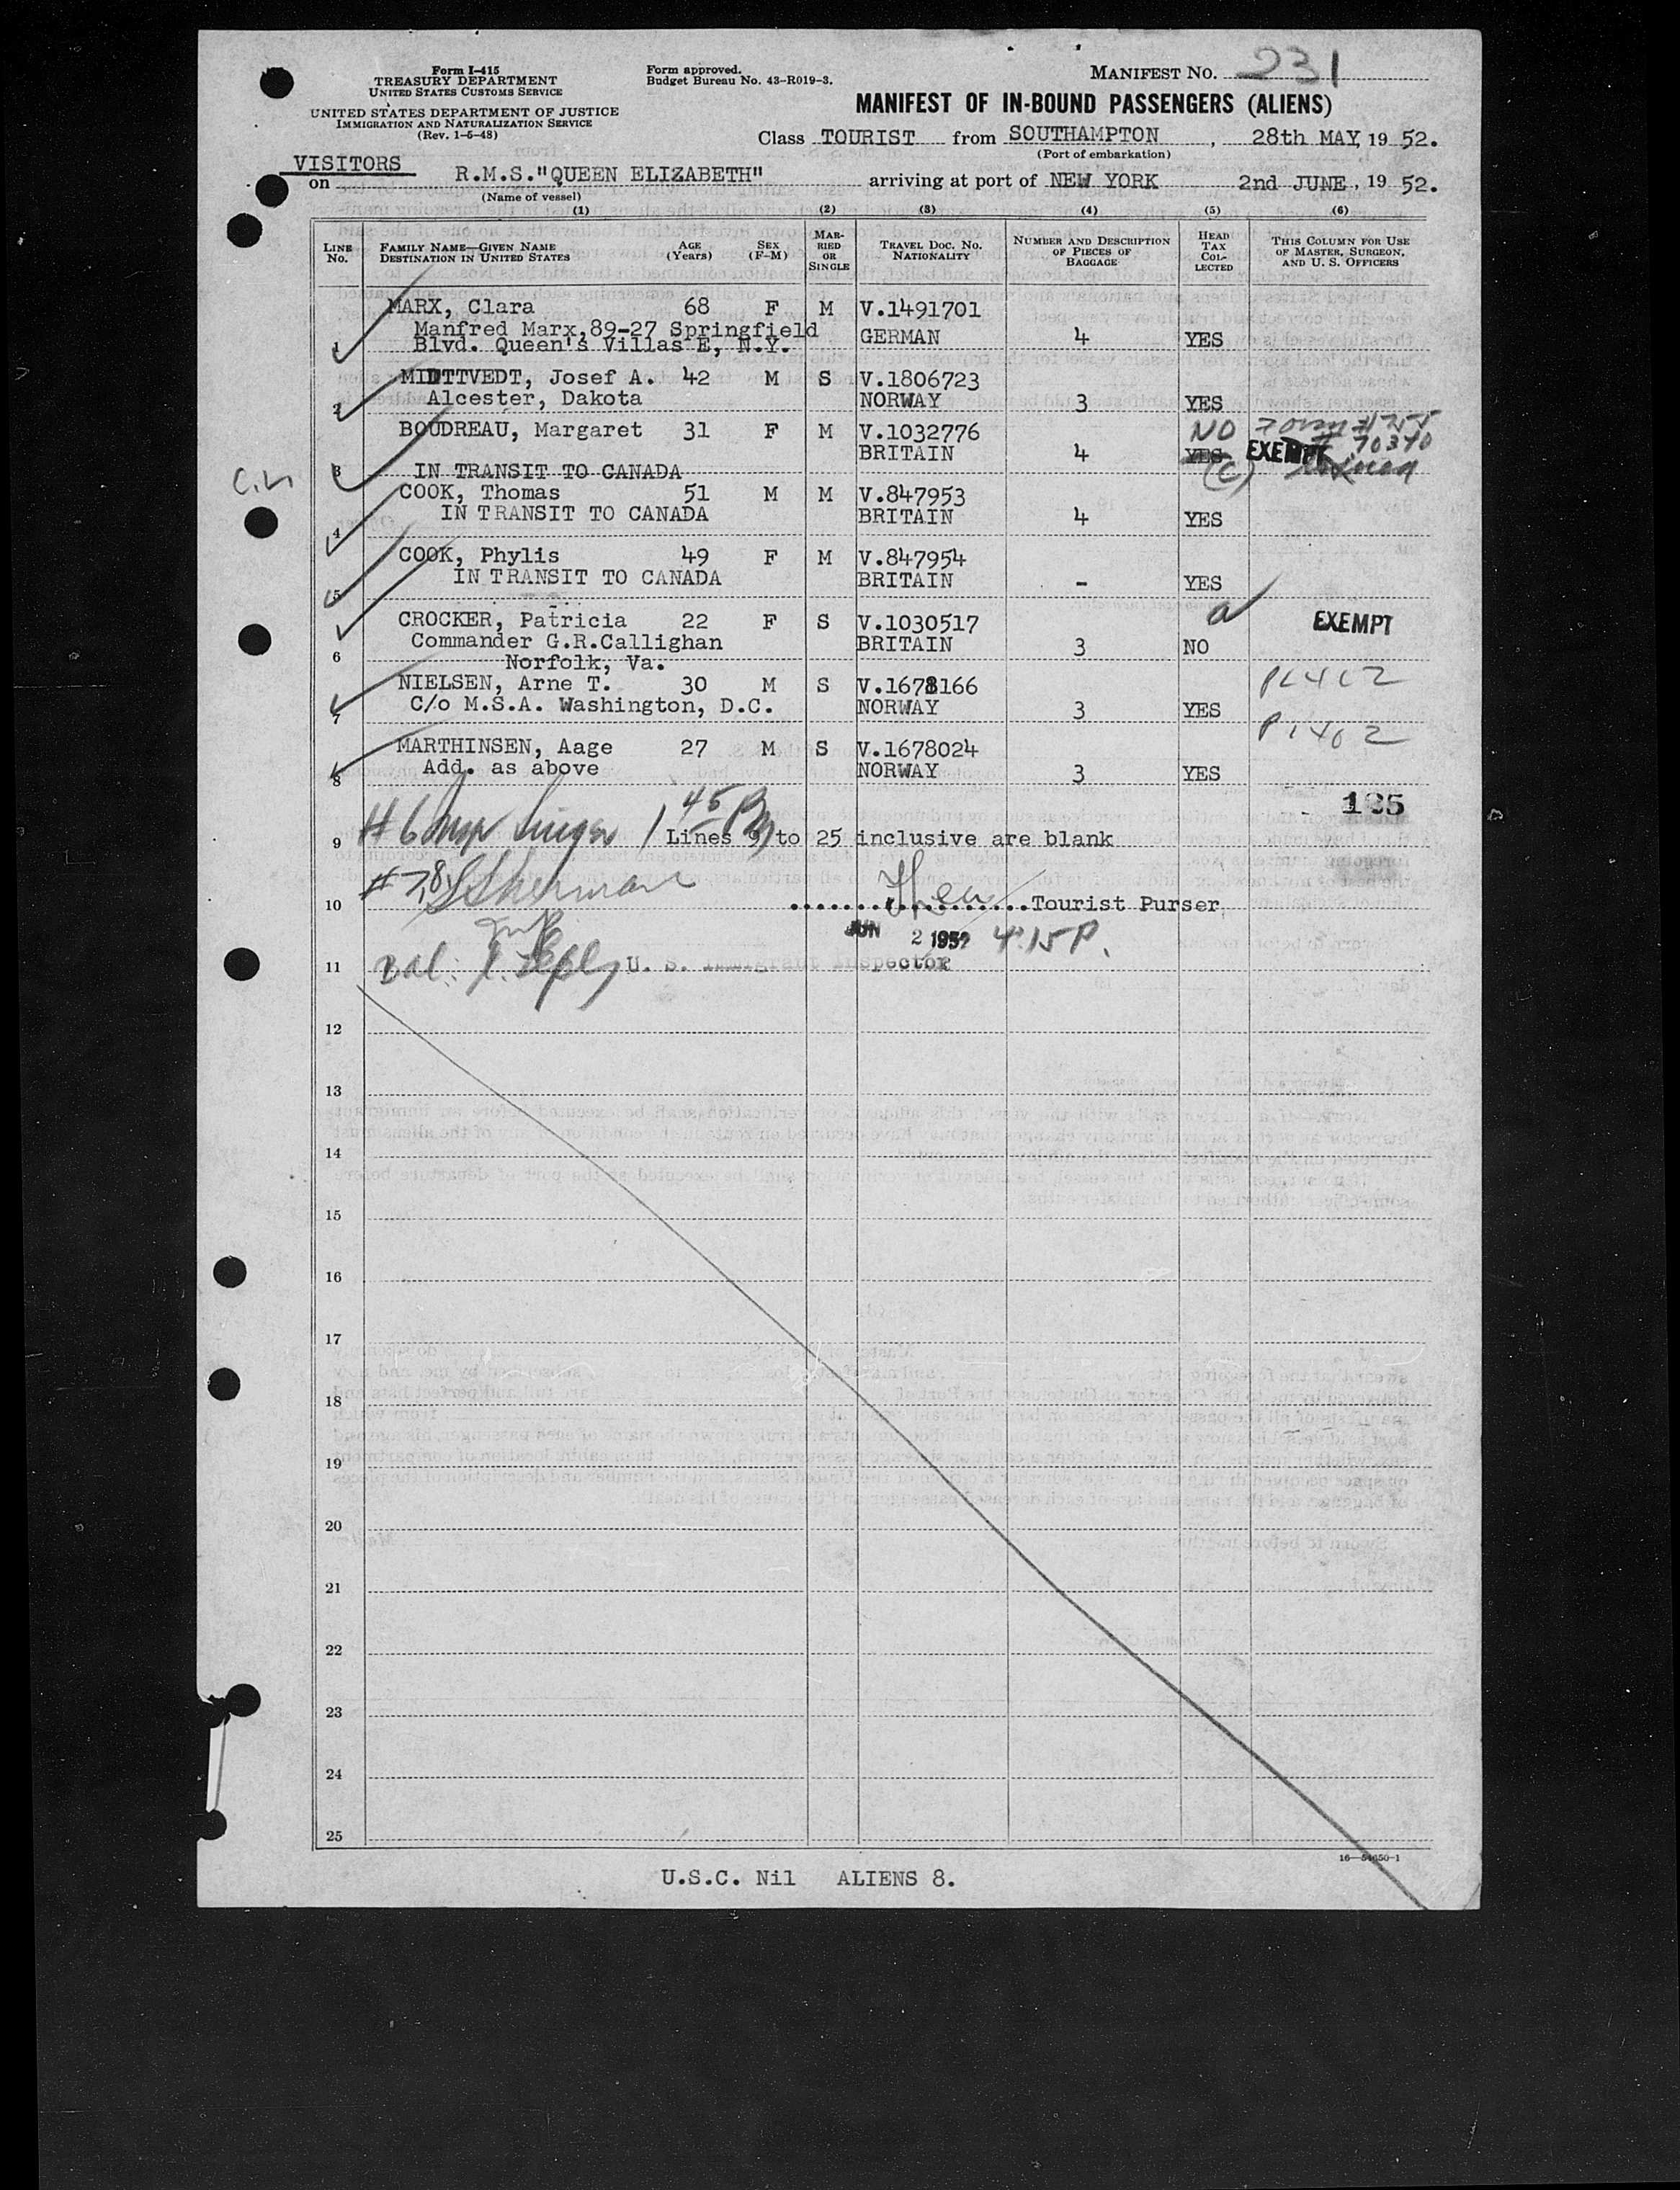 Form I-415
TREASURY DEPARTMENT
UNITED STATES CUSTOMS SERVICE
UNITED STATES DEPARTMENT OF JUSTICE
IMMIGRATION AND NATURALIZATION SERVICE
(Rev. 1-5-48)
Form approved.
Budget Bureau No. 43-R019-3.
MANIFEST NO. 231
MANIFEST OF IN-BOUND PASSENGERS (ALIENS)
Class TOURIST from SOUTHAMPTON, 28th MAY, 19 52.
(Port of embarkation)
VISITORS
on R.M.S."QUEEN ELIZABETH" arriving at port of NEW YORK 2nd JUNE, 19 52.
(Name of vessel)
(1) (2) (3) (4) (5) (6)
LINE NO. FAMILY NAME—GIVEN NAME DESTINATION IN UNITED STATES AGE (Years) SEX (F-M) MARRIED OR SINGLE TRAVEL DOC. NO. NATIONALITY NUMBER AND DESCRIPTION OF PIECES OF BAGGAGE HEAD TAX COLLECTED THIS COLUMN FOR USE OF MASTER, SURGEON, AND U. S. OFFICERS
MARX, Clara 68 F M V.1491701
Manfred Marx,89-27 Springfield
1 Blvd. Queen's Villas E, N.Y. GERMAN 4 YES
MIDTTVEDT, Josef A. 42 M S V.1806723
2 Alcester, Dakota NORWAY 3 YES
BOUDREAU, Margaret 31 F M V.1032776 NO
BRITAIN 4 YES EXEMPT 70370
C.L. 3 IN TRANSIT TO CANADA (C)
COOK, Thomas 51 M M V.847953
4 IN TRANSIT TO CANADA BRITAIN 4 YES
COOK, Phylis 49 F M V.847954
5 IN TRANSIT TO CANADA BRITAIN - YES
CROCKER, Patricia 22 F S V.1030517 a EXEMPT
6 Commander G.R.Callighan BRITAIN 3 NO
Norfolk, Va.
NIELSEN, Arne T. 30 M S V.1678166
7 C/o M.S.A. Washington, D.C. NORWAY 3 YES
MARTHINSEN, Aage 27 M S V.1678024
8 Add. as above NORWAY 3 YES
185
#6 Insp Singer 1 45 PM
9 Lines 9 to 25 inclusive are blank
#7,8 Sherman
10 Tourist Purser
JUN 2 1952 4:15 P.
11 Bal: U. S. Immigrant Inspector
12
13
14
15
16
17
18
19
20
21
22
23
24
25
16—54650-1
U.S.C. Nil ALIENS 8.